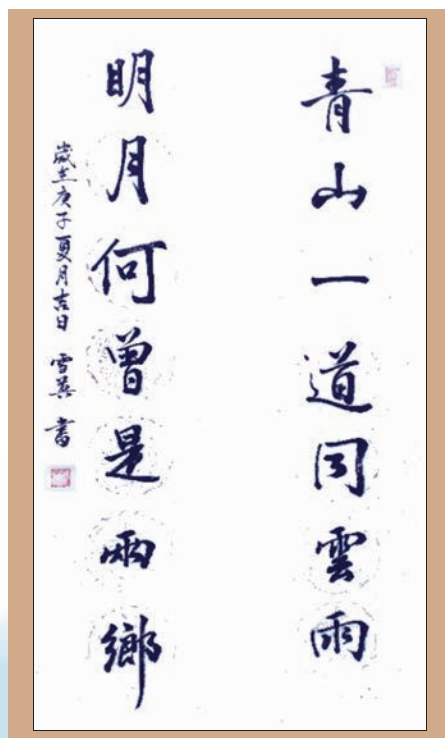 青山一道同雲雨
明月何曾是兩鄉
歲在庚子夏月吉日 雪英 書